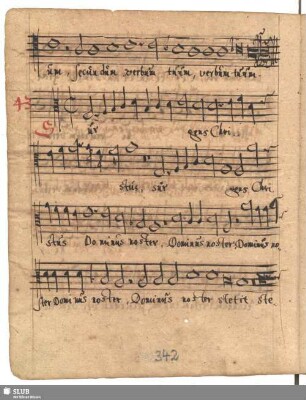 um, secundum verbum tuum, verbum tuum.
45
Sur gens Chri
stus, sur gens Chri
stus Dominus noster, Dominus noster, Dominus no
ster Dominus noster, Dominus noster stetit ste
342
SLUB